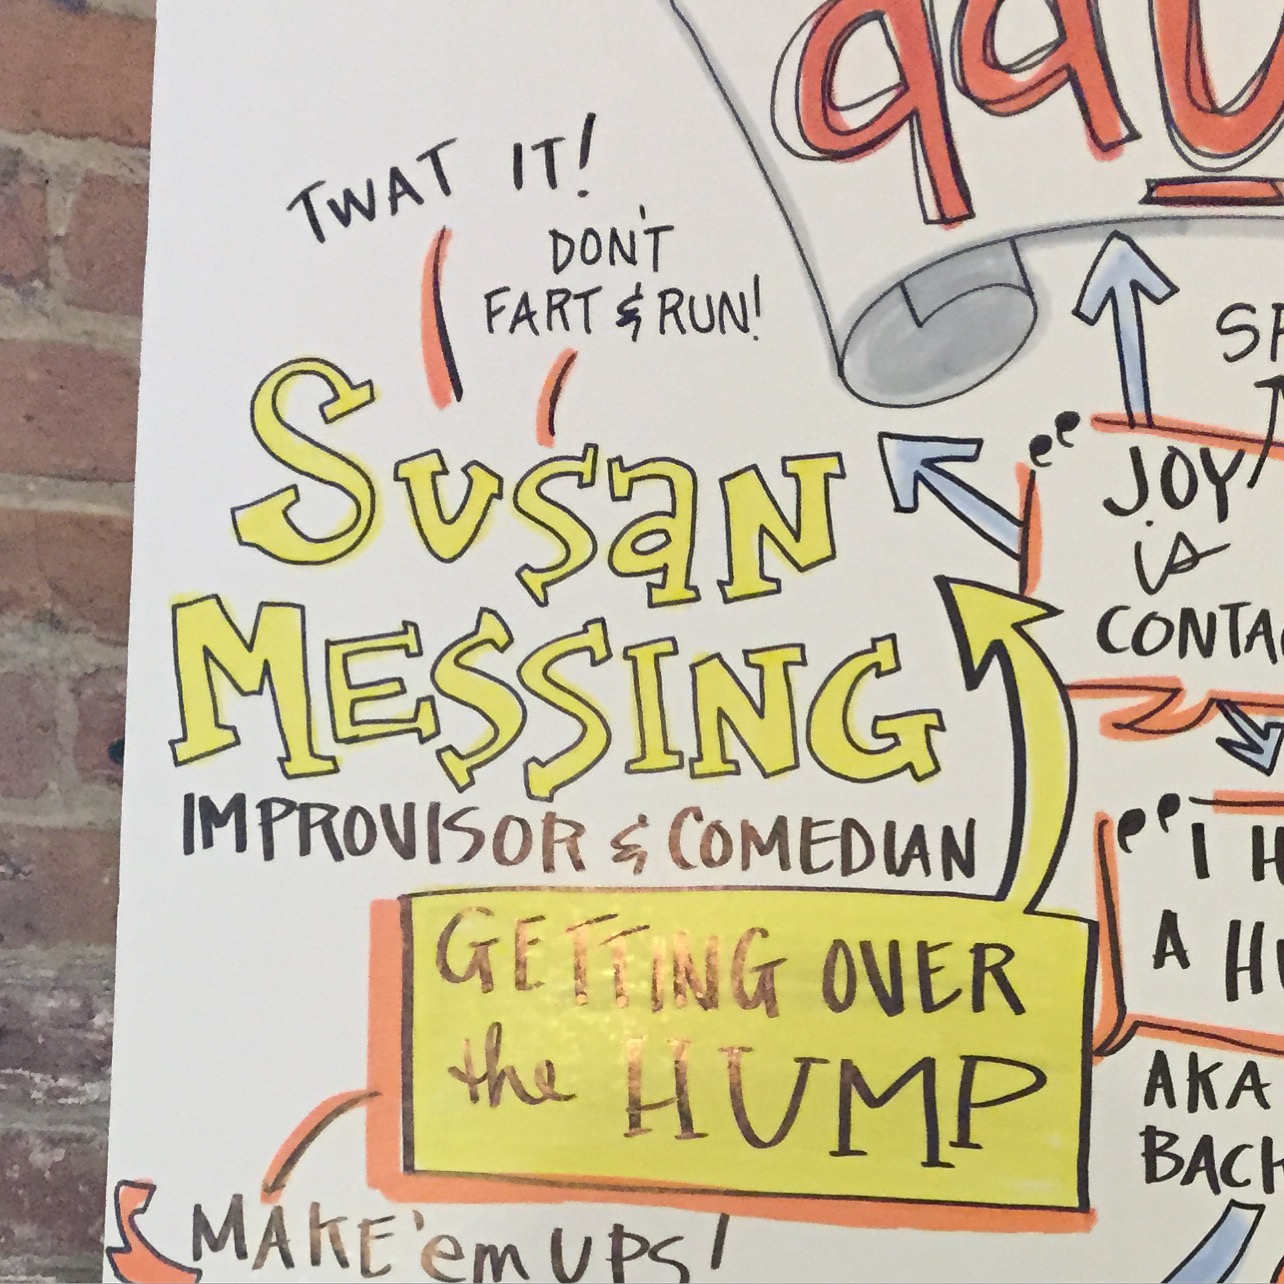 TWAT IT!
DON'T
FART & RUN!
SUSAN
MESSING
IMPROVISOR & COMEDIAN
GETTING OVER
the HUMP
MAKE 'em UPS!
"JOY
is
"I
A
AKA